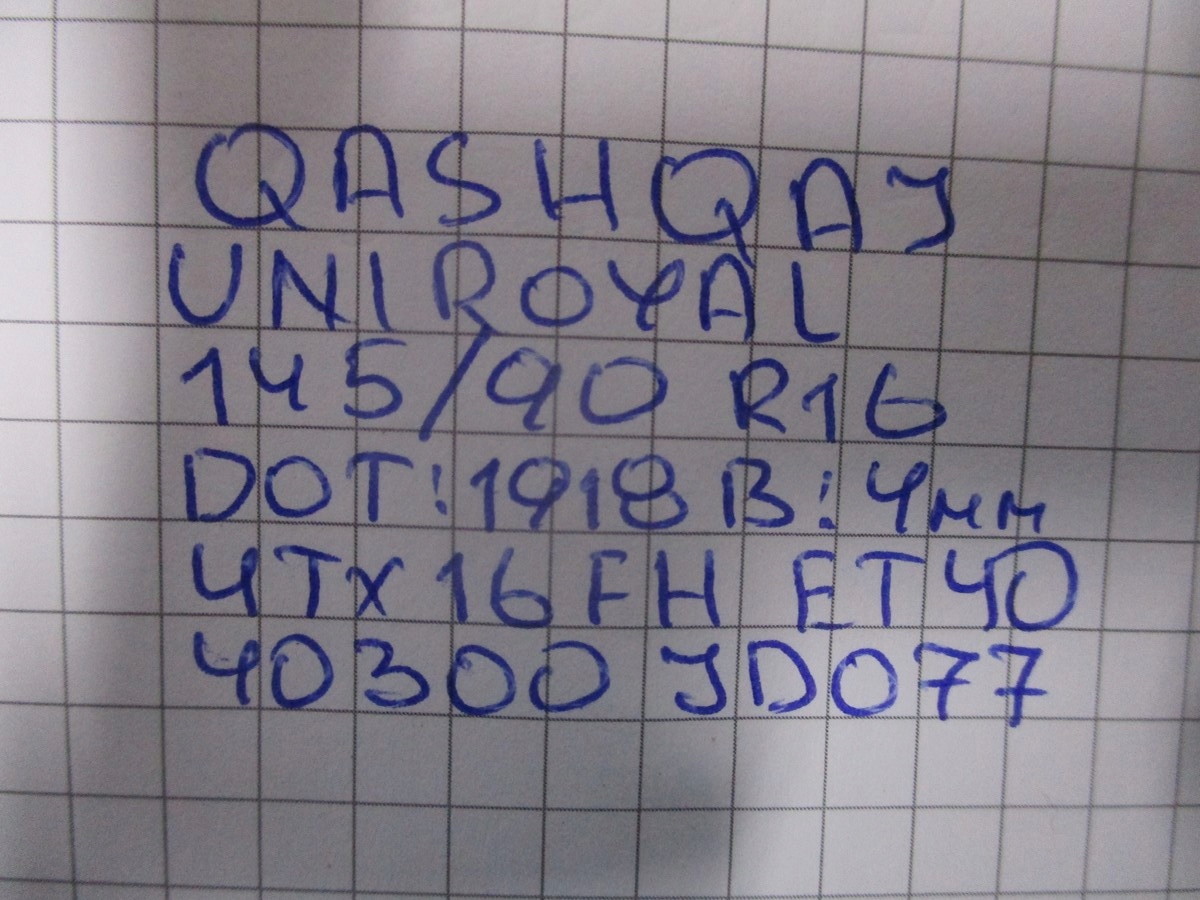 QASHQAJ
UNIROYAL
145/90 R16
DOT:1918 B:4мм
4Tx16FH ET40
40300 JD077